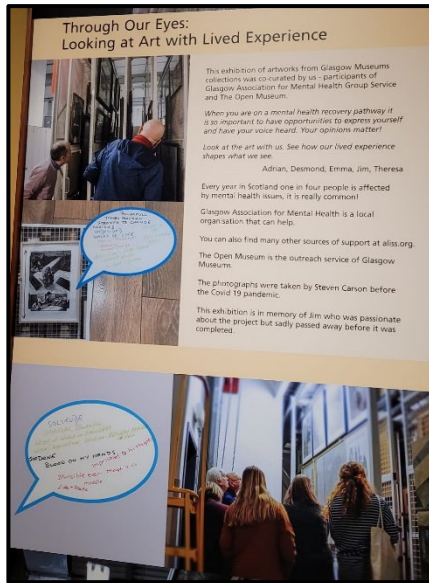 Through Our Eyes:
Looking at Art with Lived Experience
This exhibition of artworks from Glasgow Museums
collections was co-curated by us - participants of
Glasgow Association for Mental Health Group Service
and The Open Museum.
When you are on a mental health recovery pathway it
is so important to have opportunities to express yourself
and have your voice heard. Your opinions matter!
Look at the art with us. See how our lived experience
shapes what we see.
Adrian, Desmond, Emma, Jim, Theresa
Every year in Scotland one in four people is affected
by mental health issues, it is really common!
Glasgow Association for Mental Health is a local
organisation that can help.
You can also find many other sources of support at aliss.org.
The Open Museum is the outreach service of Glasgow
Museum.
The photographs were taken by Steven Carson before
the Covid 19 pandemic.
This exhibition is in memory of Jim who was passionate
about the project but sadly passed away before it was
completed.
SOLITUDE
BLOOD ON MY HANDS